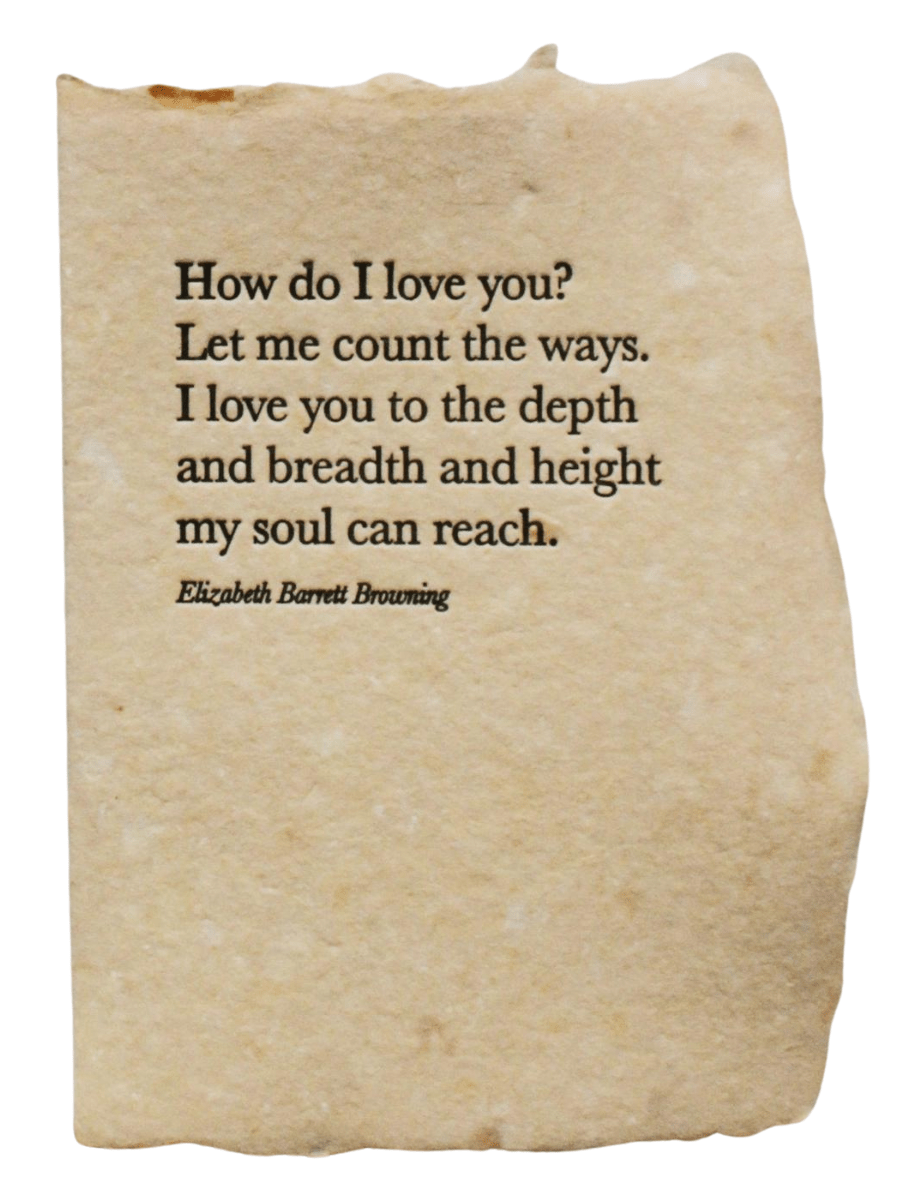 How do I love you?
Let me count the ways.
I love you to the depth
and breadth and height
my soul can reach.
Elizabeth Barrett Browning